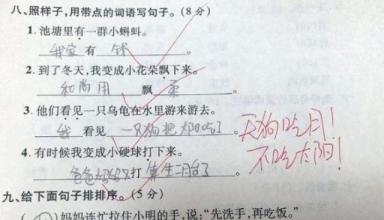 八、照样子,用带点的词语写句子。(8分)
1. 池塘里有一群小蝌蚪。
我家 有 钱
2. 到了冬天,我变成小花朵飘下来。
和尚用 飘 柔
3. 他们看见一只乌龟在水里游来游去。
我 看见 一只狗把太阳吃了
天狗吃月!
不吃太阳!
4. 有时候我变成小硬球打下来。
爸爸妈妈打 架
九、给下面句子排排序。(5分)
( )妈妈连忙拉住小明的手,说:“先洗手,再吃饭。”